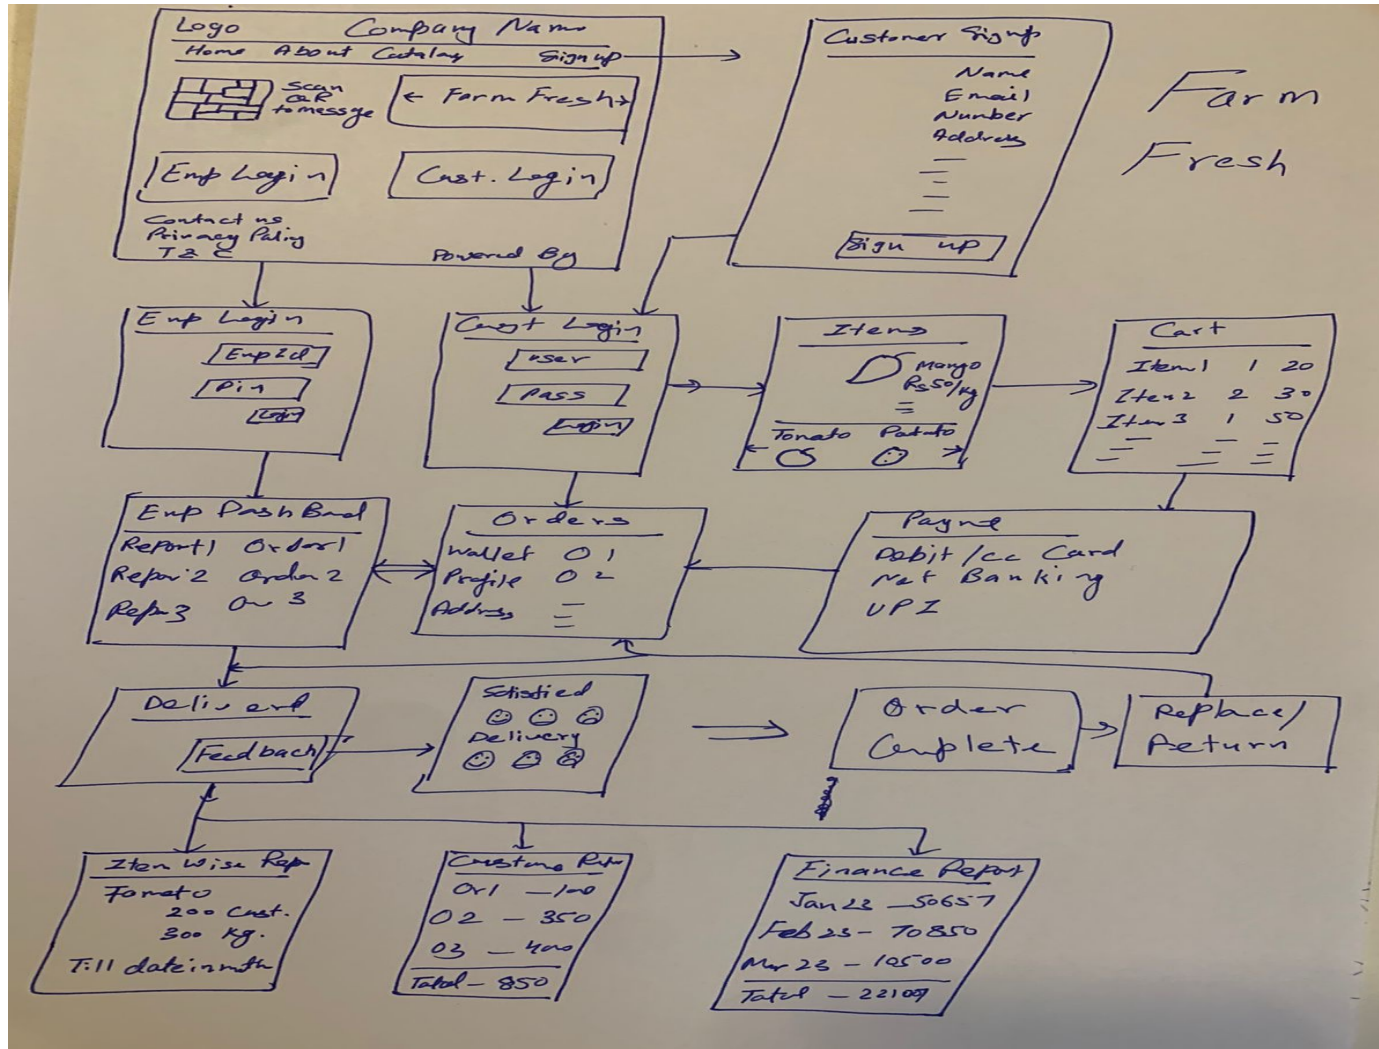 Logo Company Name
Home About Catalog Sign up
Scan
QR
to message
← Farm Fresh →
Emp Login
Cust. Login
Contact us
Privacy Policy
T & C
Powered By
Customer Signup
Name
Email
Number
Address
Sign up
Farm
Fresh
Emp Login
Emp Id
Pin
Login
Cust Login
User
Pass
Login
Items
Mango
Rs 50/kg
Tomato Potato
Cart
Item1 1 20
Item2 2 30
Item3 1 50
Emp DashBad
Report1 Order1
Repor2 Order2
Repr3 Or 3
Orders
Wallet O 1
Profile O 2
Address
Payme
Debit/cc Card
Net Banking
UPI
Deliverd
Feedback
Satisfied
Delivery
Order
Complete
Replace/
Return
Item Wise Rep
Tomato
200 Cust.
300 Kg.
Till date in mth
Custome Rep
Or1 - 100
O2 - 350
O3 - 400
Total - 850
Finance Report
Jan 23 - 50657
Feb 23 - 70850
Mar 23 - 10500
Total - 22107